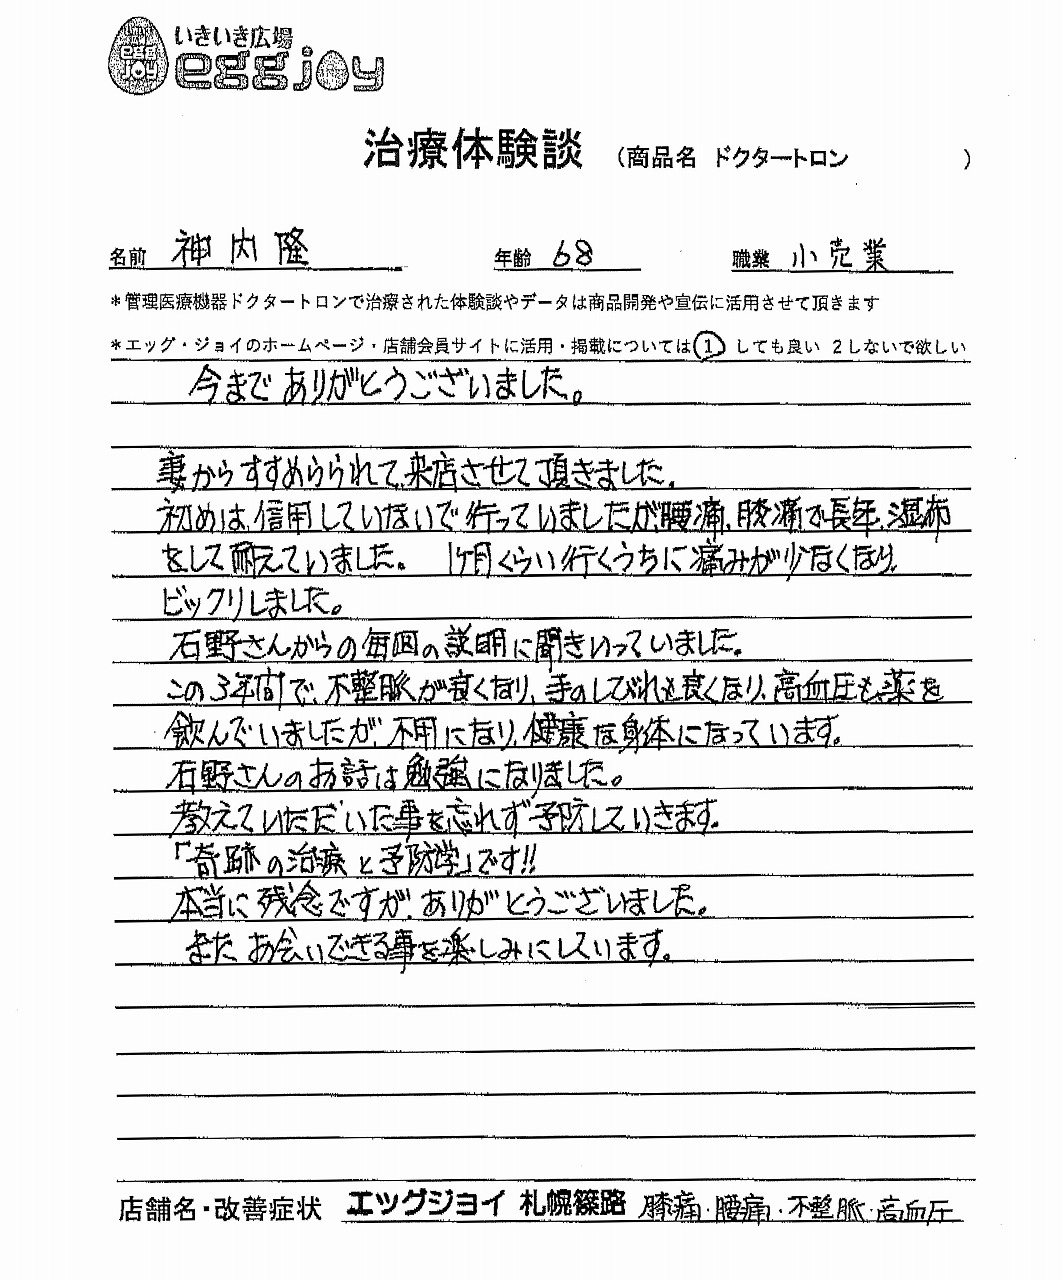 いきいき広場
egg joy
eggjoy
治療体験談 (商品名 ドクタートロン )
名前 神内隆 年齢 68 職業 小売業
*管理医療機器ドクタートロンで治療された体験談やデータは商品開発や宣伝に活用させて頂きます
*エッグ・ジョイのホームページ・店舗会員サイトに活用・掲載については① しても良い 2しないで欲しい
今までありがとうございました。
妻からすすめらられて、来店させて頂きました。
初めは、信用していないで行っていましたが腰痛、膝痛で長年、湿布
をして耐えていました。 1ケ月くらい行くうちに痛みが少なくなり、
ビックリしました。
石野さんからの毎回の説明に聞きいっていました。
この3年間で、不整脈が良くなり、手のしびれも良くなり、高血圧も薬を
飲んでいましたが、不用になり、健康な身体になっています。
石野さんのお話は勉強になりました。
教えていただいた事を忘れず予防していきます。
「奇跡の治療と予防学」です!!
本当に残念ですが、ありがとうございました。
またお会いできる事を楽しみにしています。
店舗名・改善症状 エッグジョイ 札幌篠路 膝痛・腰痛・不整脈・高血圧